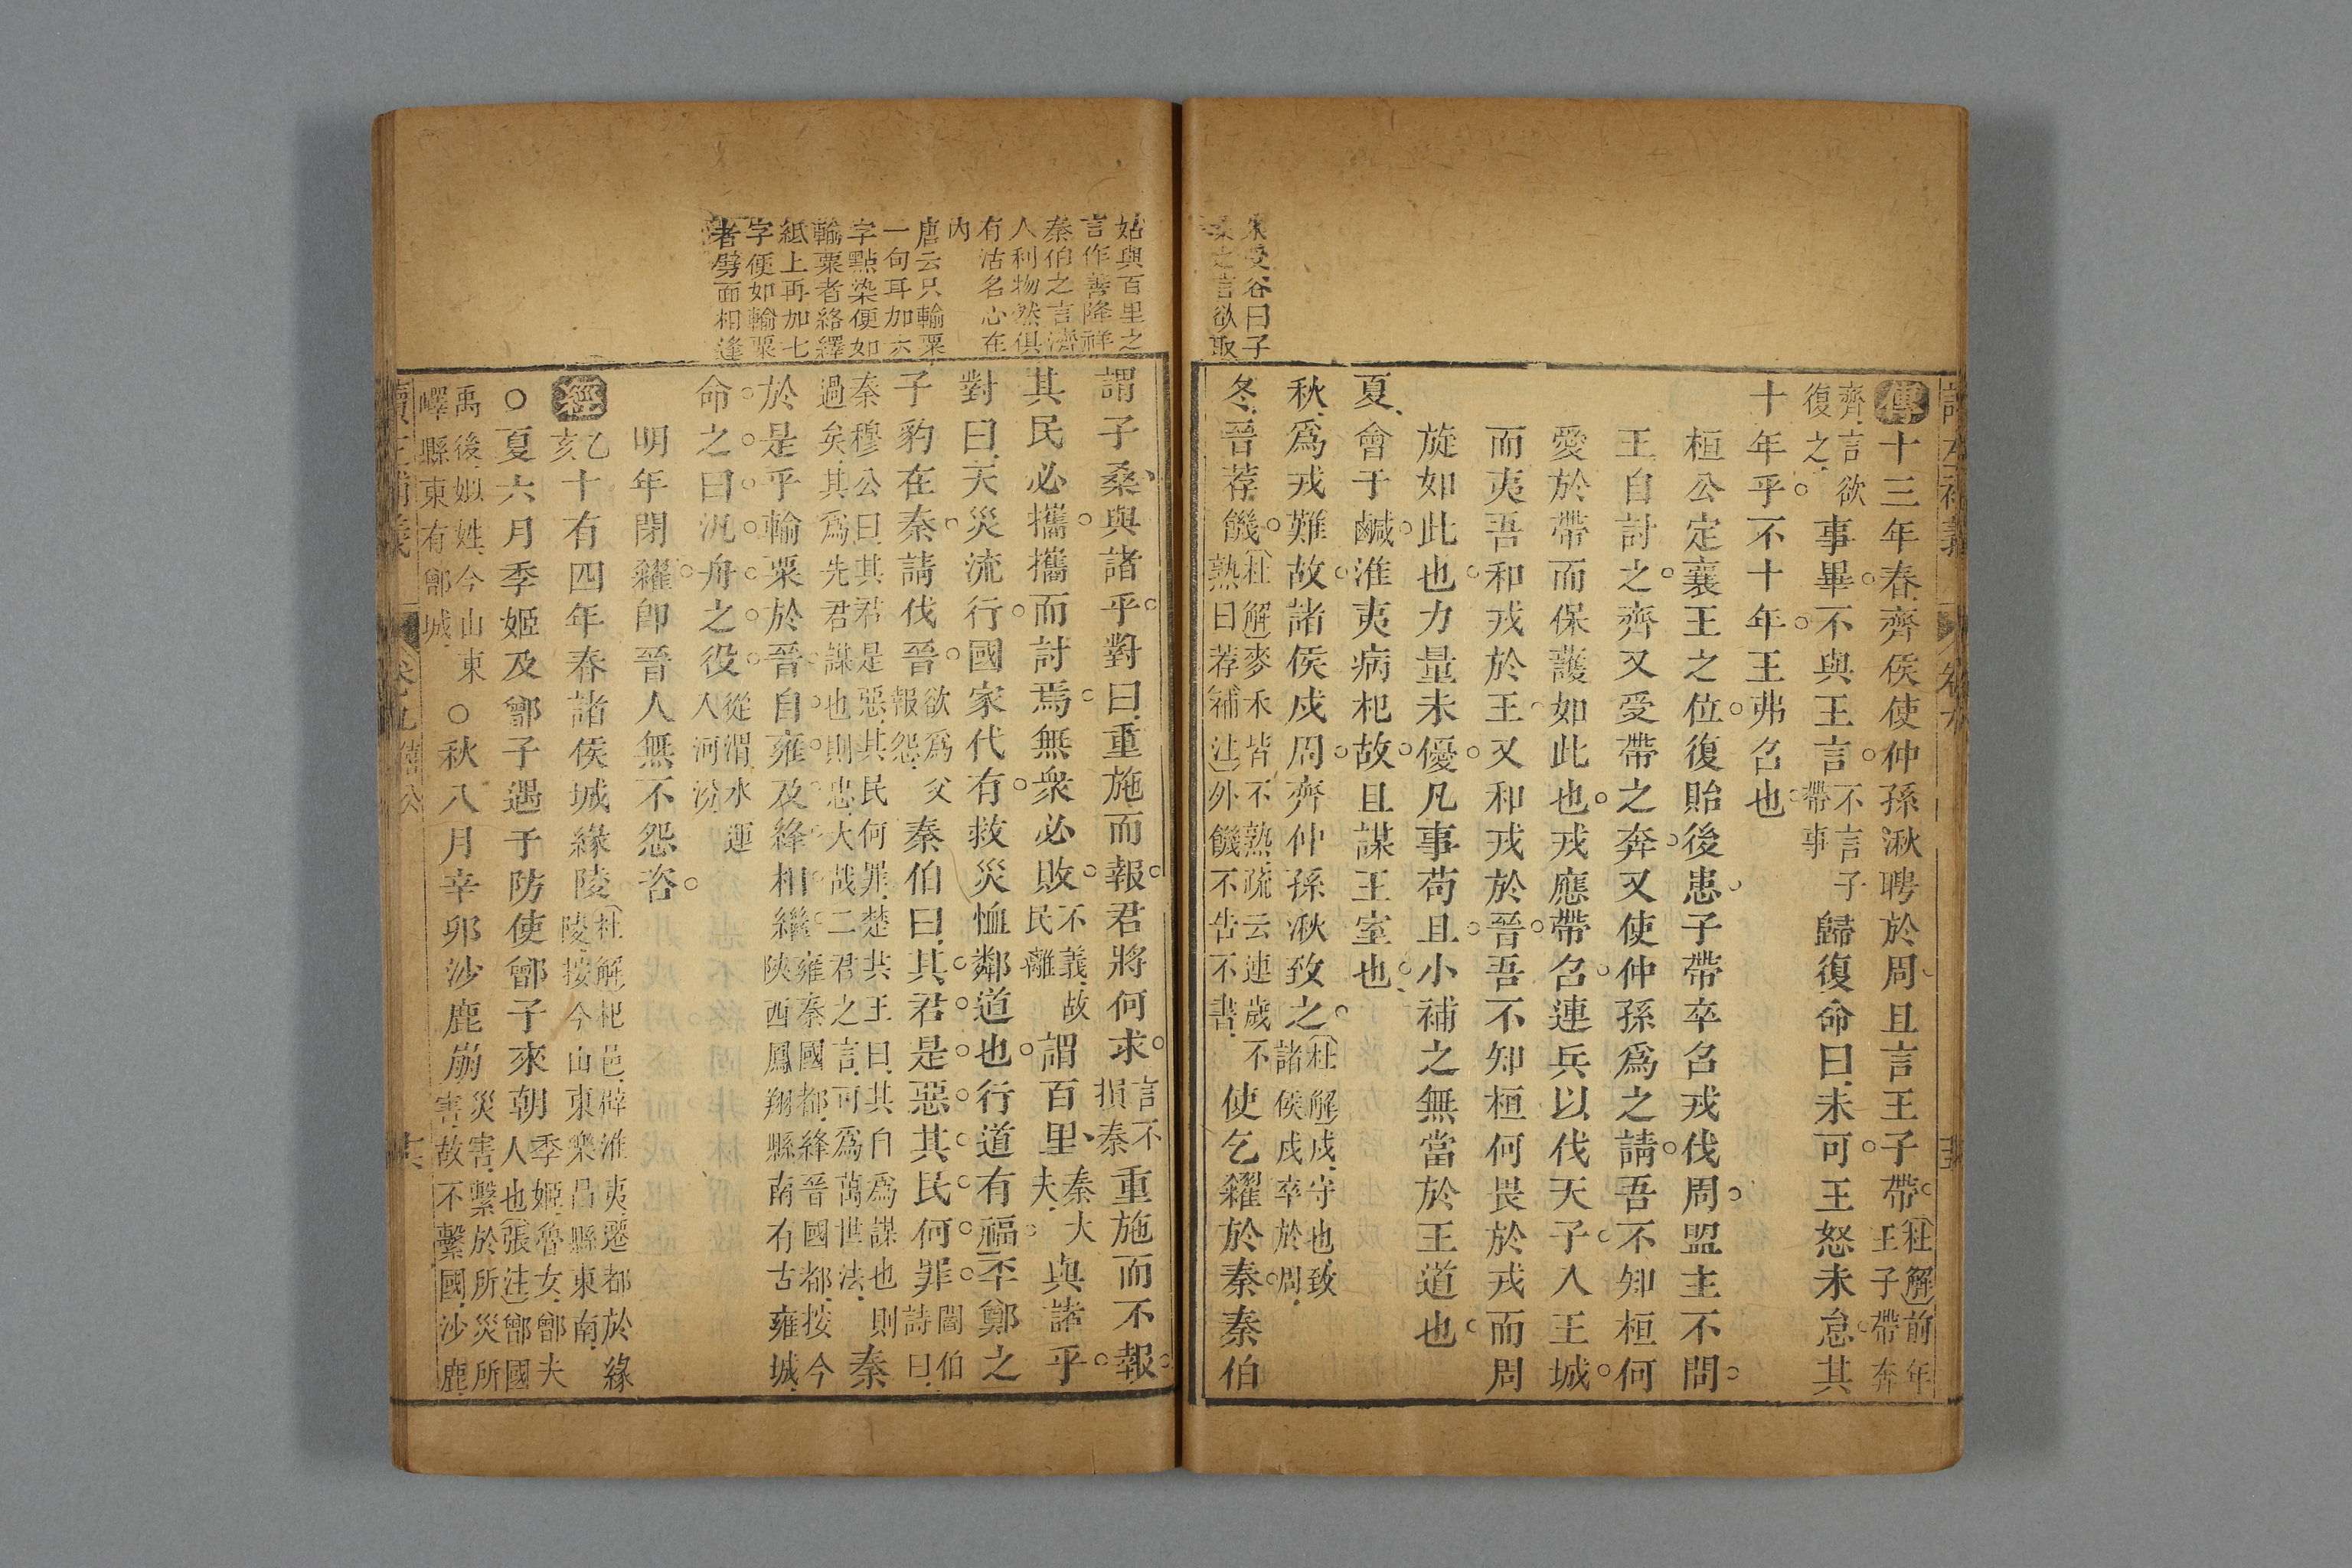 傳十三年春齊侯使仲孫湫聘於周且言王子帶杜解前年王子帶奔
齊言欲復之事畢不與王言不言子帶事歸復命曰未可王怒未怠其
十年乎不十年王弗召也
桓公定襄王之位復貽後患子帶卒召戎伐周盟主不問
王自討之齊又受帶之奔又使仲孫爲之請吾不知桓何
愛於帶而保護如此也戎應帶召連兵以伐天子入王城
而夷吾和戎於王又和戎於晉吾不知桓何畏於戎而周
旋如此也力量未優凡事苟且小補之無當於王道也
夏會于鹹淮夷病杞故且謀王室也
秋爲戎難故諸侯戍周齊仲孫湫致之杜解戍守也致諸侯戍卒於周
冬晉荐饑杜解麥禾皆不熟疏云連歲不熟曰荐補注外饑不告不書使乞糴於秦秦伯
朱受谷曰子
桑之言欲取
姑與百里之
言作善降祥
秦伯之言濟
人利物然俱
有沽名心在
內
唐云只輸粟
一句耳加六
字點染便如
輸粟者絡繹
紙上再加七
字便如輸粟
者劈面相逢
謂子桑與諸乎對曰重施而報君將何求言不損秦重施而不報
其民必攜攜而討焉無衆必敗不義故民離謂百里秦大夫與諸乎
對曰天災流行國家代有救災恤鄰道也行道有福丕鄭之
子豹在秦請伐晉欲爲父報怨秦伯曰其君是惡其民何罪閻伯詩曰
秦穆公曰其君是惡其民何罪楚共王曰其自爲謀也則過矣其爲先君謀也則忠大哉二君之言可爲萬世法秦
於是乎輸粟於晉自雍及絳相繼雍秦國都絳晉國都按今陝西鳳翔縣南有古雍城
命之曰汎舟之役從渭水運入河汾
明年閉糴卽晉人無不怨咨
經乙亥十有四年春諸侯城緣陵杜解杞邑辟淮夷遷都於緣陵按今山東樂昌縣東南
○夏六月季姬及鄫子遇于防使鄫子來朝季姬魯女鄫夫人也張注鄫國
禹後姒姓今山東嶧縣東有鄫城○秋八月辛卯沙鹿崩災害繫於所災所害故不繫國沙鹿